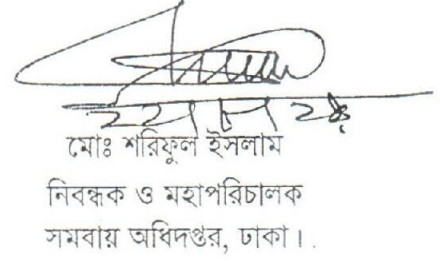 মোঃ শরিফুল ইসলাম
নিবন্ধক ও মহাপরিচালক
সমবায় অধিদপ্তর, ঢাকা।